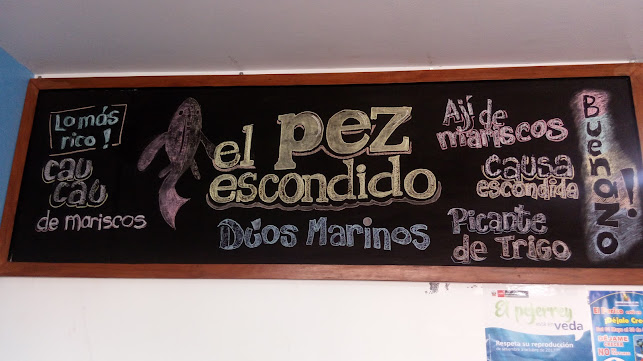 Lo más
rico!
cau
cau
de mariscos
el pez
escondido
Dúos Marinos
Ají de
mariscos
causa
escondida
Picante
de Trigo
Buenazo!
El pejerrey
veda
Respeta su reproducción